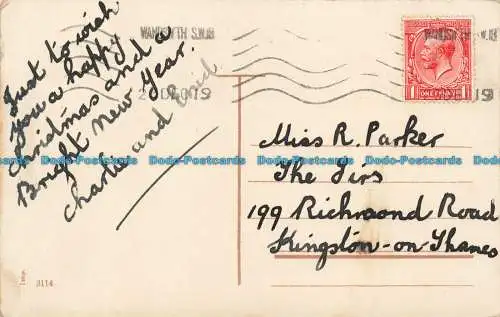 Just to wish
you a happy
Christmas and a
Bright New Year.
Charlie and Enid
WANDSWTH S.W.18
20 DEC 19
ONE PENNY
Miss R. Parker
The Firs
199 Richmond Road
Kingston-on-Thames
Dodo-Postcards Dodo-Postcards Dodo-Postcards Dodo-Postcards Dodo-Postcards Dodo-Postcards
3114